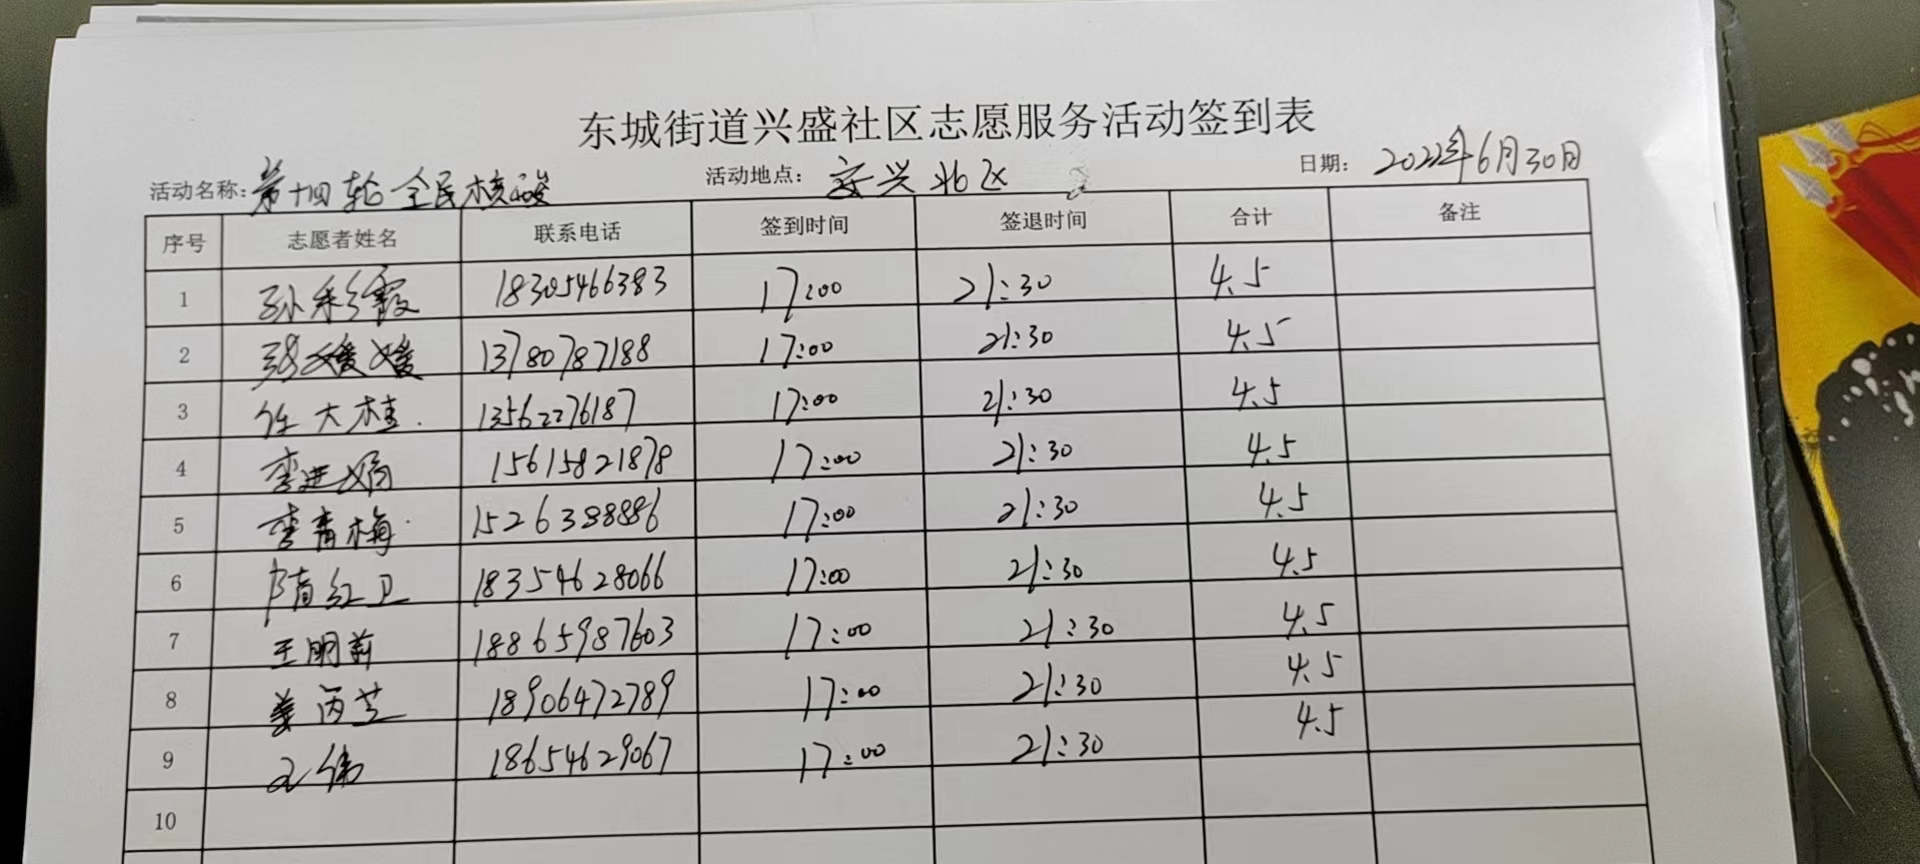 东城街道兴盛社区志愿服务活动签到表
活动名称：第十四轮全民核酸 活动地点：安兴北区 日期：2022年6月30日
序号 志愿者姓名 联系电话 签到时间 签退时间 合计 备注
1 孙彩霞 18305466383 17:00 21:30 4.5
2 张媛媛 13780787188 17:00 21:30 4.5
3 任大桂 13562276187 17:00 21:30 4.5
4 李进娟 15615821878 17:00 21:30 4.5
5 李青梅 15263888886 17:00 21:30 4.5
6 隋红卫 18354628066 17:00 21:30 4.5
7 王明莉 18865987603 17:00 21:30 4.5
8 姜丙芝 18906472789 17:00 21:30 4.5
9 王伟 18654629067 17:00 21:30 4.5
10